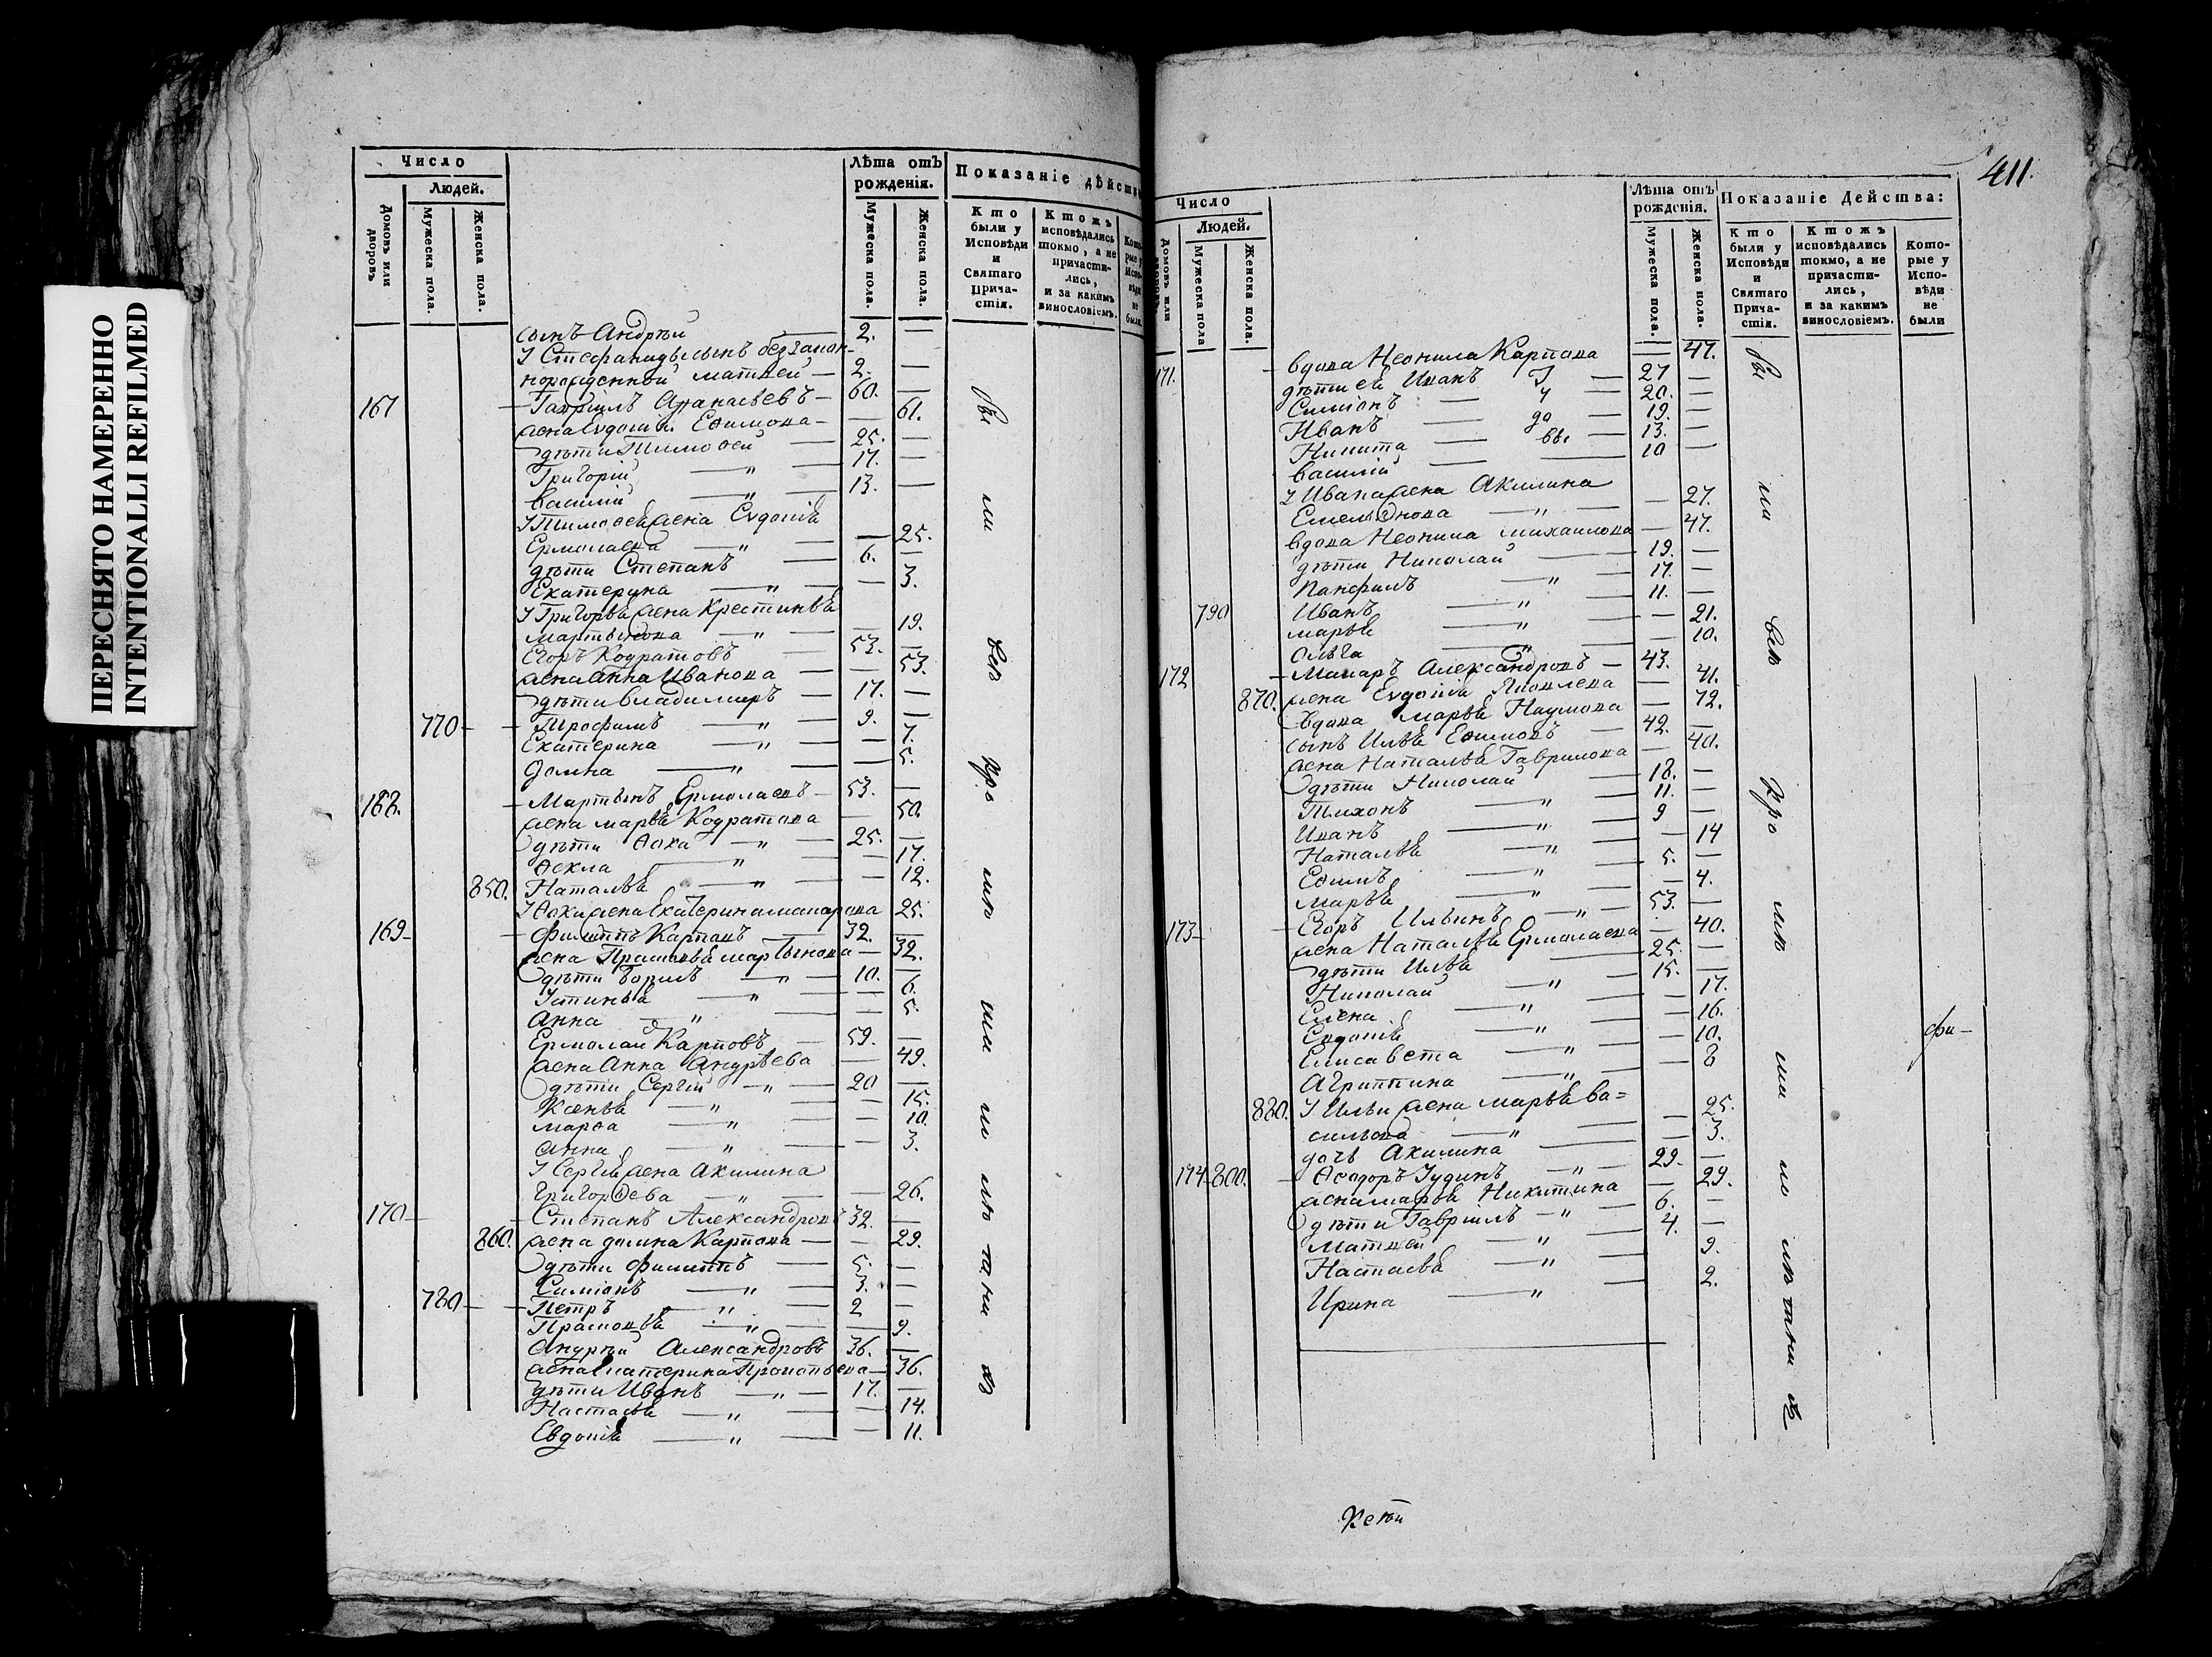 ПЕРЕСНЯТО НАМЕРЕННО
INTENTIONALLI REFILMED
Число
Людей.
Домовъ или дворовъ
Мужеска пола.
Женска пола.
Лѣта отъ рожденія.
Мужеска пола.
Женска пола.
Показаніе дѣйств
Кто были у Исповѣди и Святаго Прича- стія.
Ктожъ исповѣдались токмо, а не причасти- лись, и за какимъ винословіемъ.
Кото- рые у Испо- вѣди не были.
сынъ Андрей — 2. —
У Стефаниды сынъ беззакон-
норожденной Матвей — 2. —
167 Гавріилъ Афанасьевъ — 60. —
жена Евдокія Ефимова — — 61.
дѣти Тимоѳей — 25. —
Григорій — " — 17. —
Василій — " — 13. —
У Тимоѳея жена Евдокія
Ермолаева — " — — 25.
дѣти Степанъ — 6. —
Екатерина — " — — 3.
У Григорья жена Крестинья
Мартынова — " — — 19.
Егоръ Кодратовъ — 53. —
жена Анна Иванова — — 53.
дѣти Владимиръ — 17. —
770 Трофимъ — " — 9. —
Екатерина — " — — 7.
Домна — " — — 5.
168. Мартынъ Ермолаевъ — 53. —
жена Марья Кодратова — 50.
дѣти Ѳока — " — 25. —
Ѳекла — " — — 17.
850. Наталья — " — — 12.
У Ѳоки жена Екатерина Макарова 25.
169 Филиппъ Карповъ — 32. —
жена Прасковья Мартынова — 32.
дѣти Борисъ — " — 10. —
Устинья — " — — 6.
Анна — " — — 5.
Ермолай Карповъ — 59. —
жена Анна Андрѣева — 49.
дѣти Сергій — " — 20 —
Ксенья — " — — 15.
Марѳа — " — — 10.
Анна — " — — 3.
У Сергія жена Акилина
Григорьева — " — — 26.
170 Степанъ Александровъ 32. —
860. жена Домна Карпова — — 29.
дѣти Филиппъ — 5. —
Симіонъ — " — 3. —
780 Петръ — " — 2 —
Прасковья — " — — 9.
Андрей Александровъ 36. —
жена Екатерина Прокопьева — 36.
дѣти Иванъ — " — 17. —
Настасья — " — — 14.
Евдокія — " — — 11.
бы ли всѣ
411.
Число
Людей.
Домовъ или дворовъ.
Мужеска пола
Женска пола.
Лѣта отъ рожденія.
Мужеска пола.
Женска пола.
Показаніе Действа:
Кто были у Исповѣди и Святаго Прича- стія.
Ктожъ исповѣдались токмо, а не причасти- лись, и за какимъ винословіемъ.
Кото- рые у Испо- вѣди не были
171. вдова Неонила Карпова — 47.
дѣти ей Иванъ — 27 —
Симіонъ — 20. —
Иванъ — 19. —
Никита — 13. —
Василій — 10 —
У Ивана жена Акилина
Емельянова — " — — 27.
вдова Неонила Михаилова — 47.
дѣти Николай — 19. —
Панфилъ — " — 17. —
790 Иванъ — " — 11. —
Марья — " — — 21.
Ольга — " — — 10.
172 Макаръ Александровъ — 43.
870. жена Евдокія Яковлева — 41.
вдова Марья Наумова — 72.
сынъ Илья Ефимовъ — 42. —
жена Наталья Гаврилова — 40.
дѣти Николай — 18. —
Тихонъ — " — 11. —
Иванъ — " — 9
Наталья — " — — 14
Ефимъ — " — 5. —
Марья — " — — 4.
173 Егоръ Ильинъ — " — 53. —
жена Наталья Ермолаева — 40.
дѣти Илья — 25. —
Николай — " — 15. —
Елена — " — — 17.
Евдокія — " — — 16.
Елисавета — " — — 10.
Агриппина — " — — 8
880. У Ильи жена Марья Ва=
сильева — " — — 25.
дочь Акилина — — 3.
174 800. Ѳеодоръ Іудинъ — " — 29. —
жена Марья Никитина — 29.
дѣти Гавріилъ — " — 6. —
Матвей — " — 4. —
Настасья — " — 9.
Ирина — " — 2.
бы ли всѣ